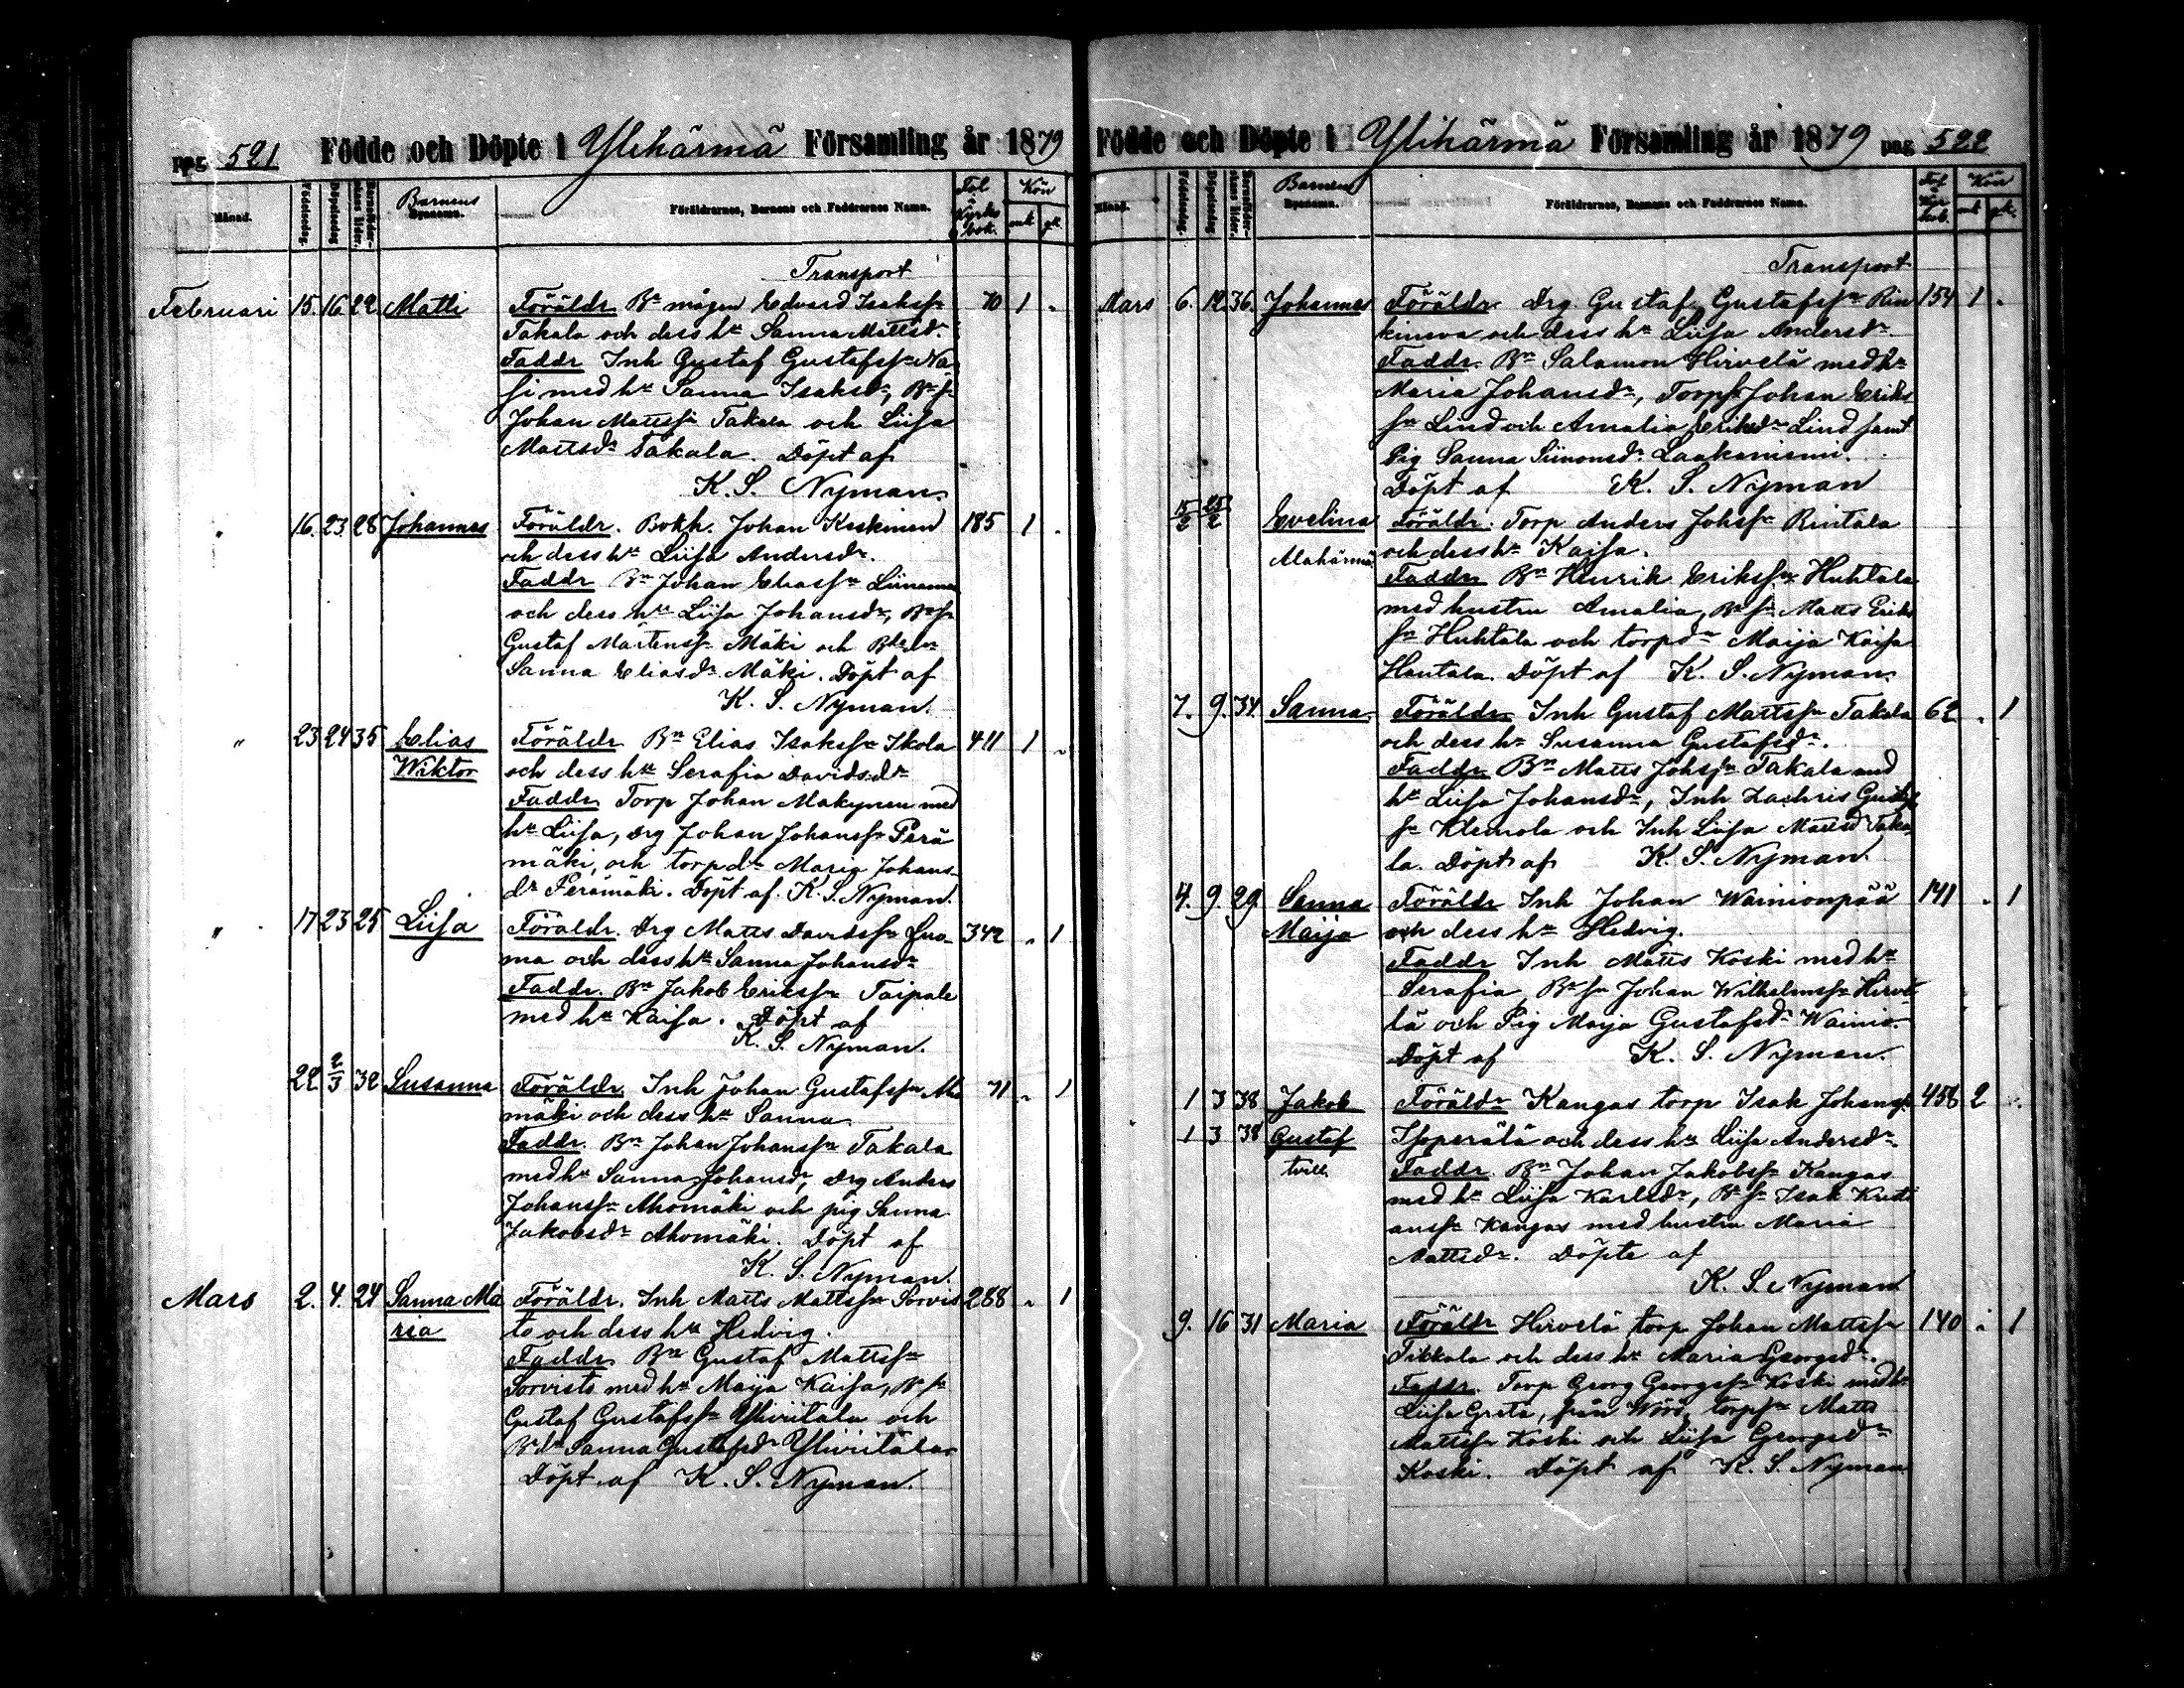 pag 521 Födde och Döpte i Ylihärmä Församling år 1879
Månad. Födelsedag. Döpelsedag Barnaföder-skans ålder. Barnens Byanamn. Föräldrarnes, Barnens och Faddrarnes Namn. Fol i Kyrko bok. Kön mk qk.
Transport
Februari 15. 16. 22 Matti Föräldr. Bn mågen Edvard Isakssn 70 1 "
Takala och dess hu Sanna Mattsdr.
Faddr Inh Gustaf Gustafssn
si med hu Sanna Isaksdr, Bn sn
Johan Mattssn Takala och Liisa
Mattsdr Takala. Döpt af
K. S. Nyman.
" 16. 23. 28 Johannes Föräldr. Bokh. Johan Keskinen 185 1 "
och dess hu Liisa Andersdr.
Faddr Bn Johan Eliassn Liinamaa
och dess hu Liisa Johansdr, Bn sn
Gustaf Mårtenssn Mäki och Bdr
Sanna Eliasdr Mäki. Döpt af
K. S. Nyman.
" 23 24 35 Elias Föräldr Bn Elias Isakssn Ikola 411 1 "
Wiktor och dess hu Serafia Davidsdr
Faddr Torp Johan Makynen med
hu Liisa, drg Johan Johanssn Perä
mäki, och torpdr Maria Johans-
dr Perämäki. Döpt af K. S. Nyman.
" 17 23 25 Liisa Föräldr. Drg Matts Davidssn Luo- 342 " 1
ma och dess hu Sanna Johansdr
Faddr. Bn Jakob Erikssn Taipale
med hu Kaisa. Döpt af
K. S. Nyman.
22. 2/3 32 Susanna Föräldr Inh Johan Gustafssn Aho 71 " 1
mäki och dess hu Sanna
Faddr. Bn Johan Johanssn Takala
med hu Sanna Johansdr, drg Anders
Johanssn Ahomäki och pig Sanna
Jakobsdr Ahomäki. Döpt af
K. S. Nyman.
Mars 2. 4. 24 Sanna Ma Föräldr. Inh Matts Mattssn Sorvis 288 " 1
ria to och dess hu Hedvig.
Faddr Bn Gustaf Mattssn
Sorvisto med hu Maija Kaisa, Bn sn
Gustaf Gustafssn Yliviitala och
Bdr Sanna Gustafsdr Yliviitala
Döpt af K. S. Nyman.
Födde och Döpte i Ylihärmä Församling år 1879 pag 522
Månad. Födelsedag. Döpelsedag Barnaföder-skans ålder. Barnens Byanamn. Föräldrarnes, Barnens och Faddrarnes Namn. Fol i Kyrko bok. Kön mk qk.
Transport
Mars 6. 12. 36. Johannes Föräldr. Drg. Gustaf Gustafssn Rin 154 1 "
kineva och dess hu Liisa Andersdr
Faddr. Bn Salamon Hirvelä med hu
Maria Johansdr, Torpsn Johan Eriks
sn Lind och Amalia Eriksdr Lind samt
Pig Sanna Simonsdr Laakaniemi.
Döpt af K. S. Nyman
15/2 25/2 Evelina Föräldr. Torp Anders Johssn Rintala
Alahärmä och dess hu Kaisa.
Faddr Bn Henrik Erikssn Huhtala
med hustru Amalia, Bn sn Matts Eriks
sn Huhtala och torpdr Maija Kaisa
Hautala. Döpt af K. S. Nyman.
7. 9. 34 Sanna Föräldr Inh Gustaf Mattssn Takala 62 " 1
och dess hu Susanna Gustafsdr.
Faddr Bn Matts Johssn Takala med
hu Liisa Johansdr, Inh Zachris Gustaf
sn Klemola och Inh Liisa Mattsd Taka
la. Döpt af K. S. Nyman.
4. 9. 29 Sanna Föräldr Inh Johan Wainionpää 141 " 1
Maija och dess hu Hedvig.
Faddr Inh Matts Koski med hu
Serafia Bn sn Johan Wilhelmssn Hirve
lä och Pig Maija Gustafsdr Wainio.
Döpt af K. S. Nyman.
1 3 38 Jakob Föräldr Kangas torp Isak Johanss 458 2 "
1 3 38 Gustaf Isoperälä och dess hu Liisa Andersdr.
tvill. Faddr. Bn Johan Jakobssn Kangas
med hu Liisa Karlsdr, Bn sn Isak Kristi
anssn Kangas med hustru Maria
Mattsdr. Döpte af
K. S. Nyman
9. 16 31 Maria Föräldr Hirvelä torp Johan Mattssn 140 " 1
Tikkala och dess hu Maria Georgsdr.
Faddr. Torp Georg Georgssn Koski med hu
Liisa Greta, från Wörå, torpsn Matts
Mattssn Koski och Liisa Georgsdr
Koski. Döpt af K. S. Nyman